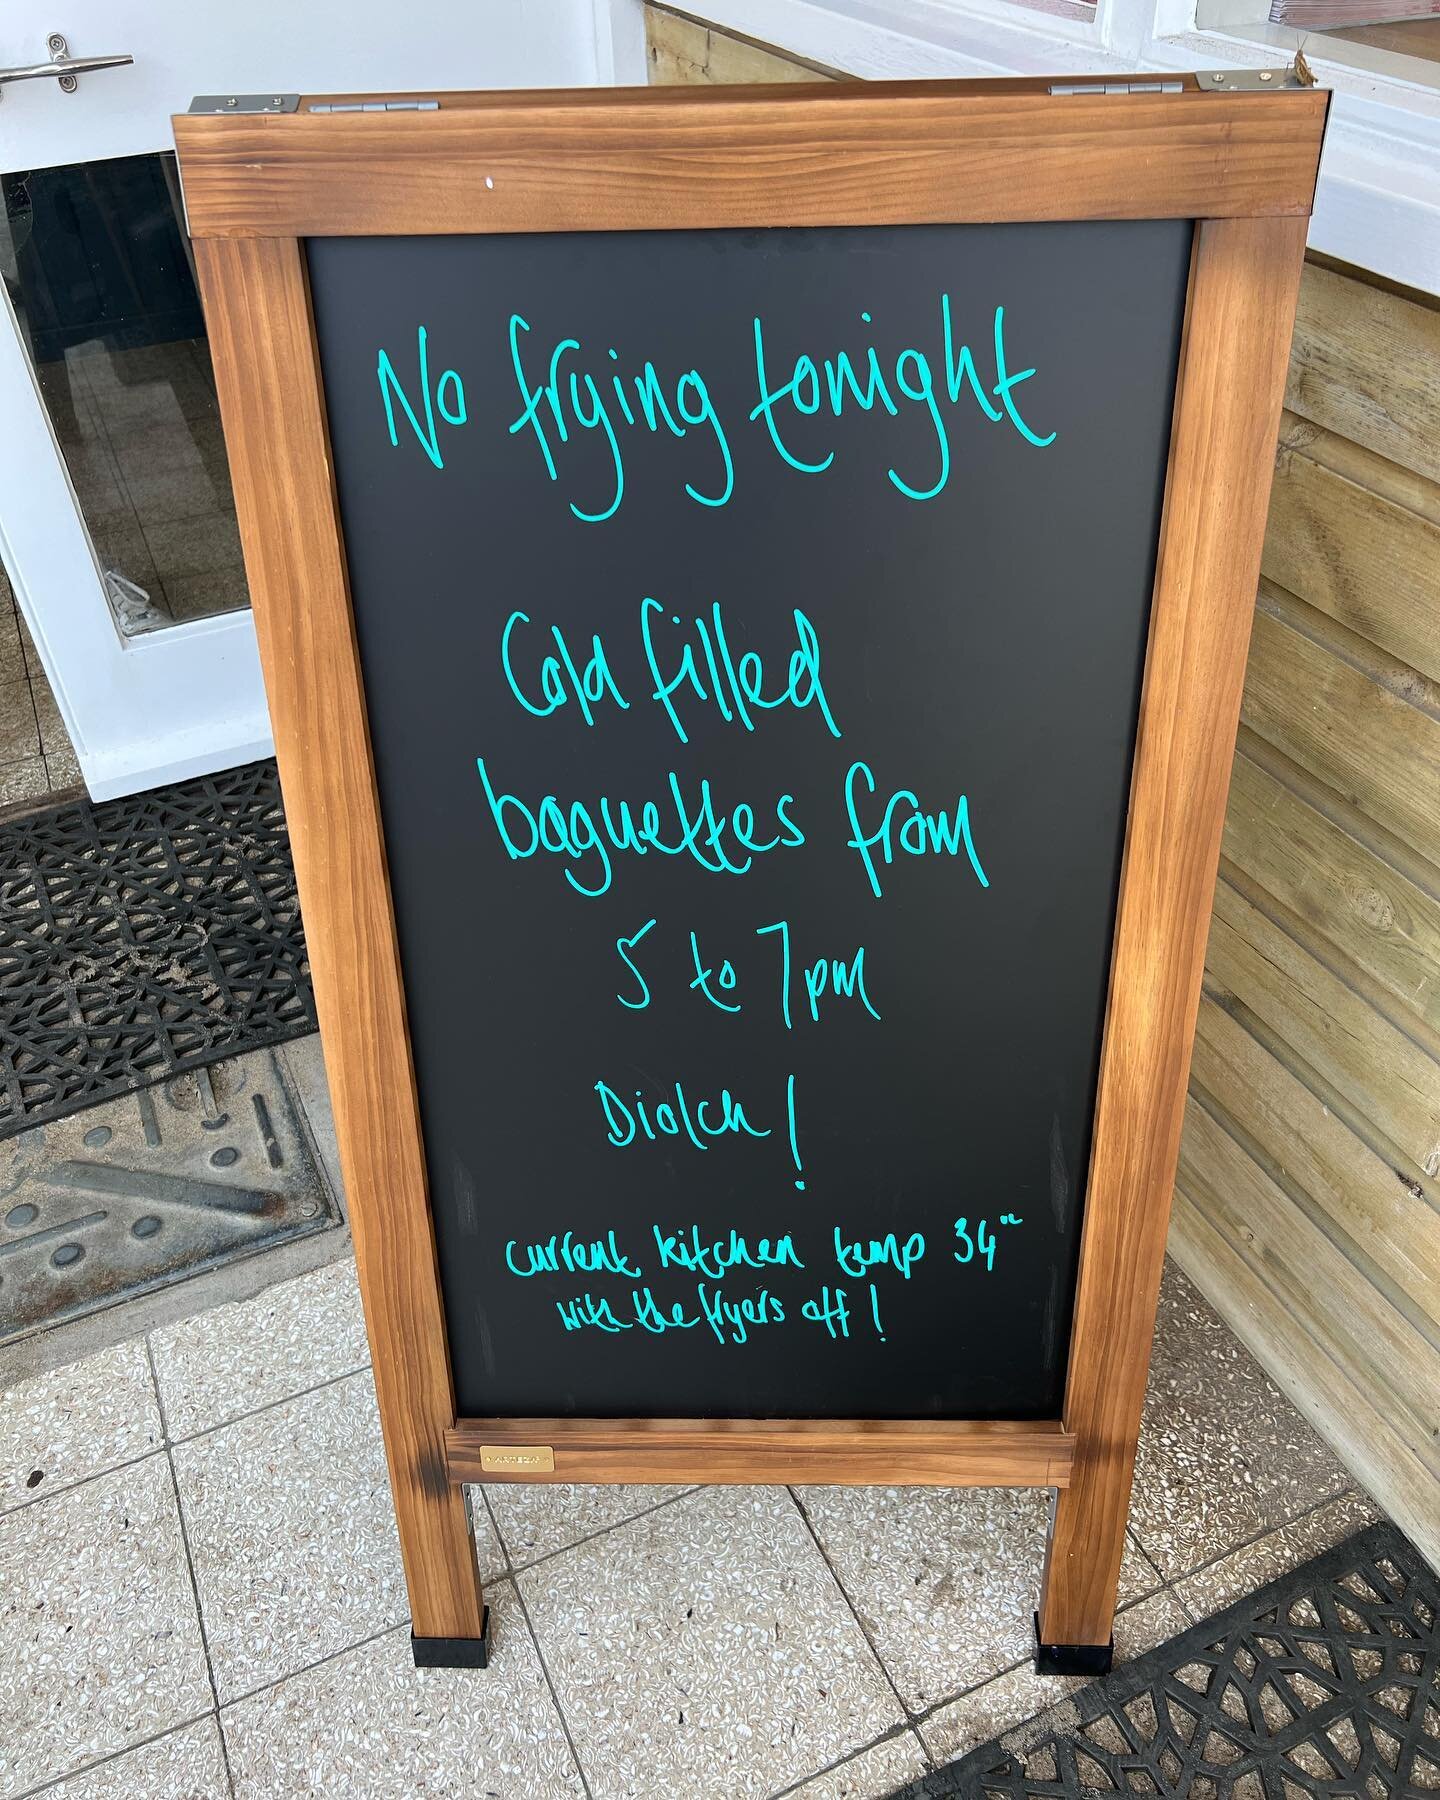 No frying tonight
Cold filled
baguettes from
5 to 7pm
Diolch!
current kitchen temp 34°c
with the fryers off!
ARTEZA